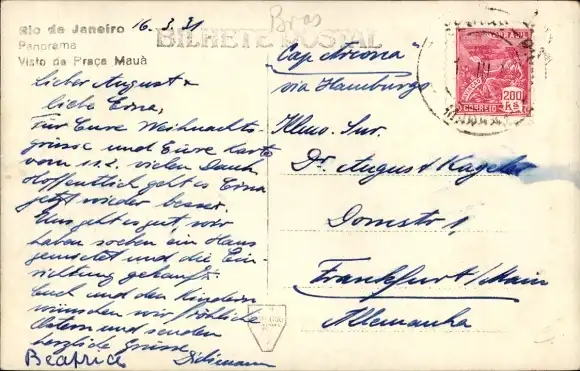 Rio de Janeiro
Panorama
Visto da Praça Mauá
16.3.31
Bras
BILHETE POSTAL
Lieber August &
liebe Erna,
Für Eure Weihnachts-
grüsse und Eure Karte
vom 11.2. vielen Dank
Hoffentlich geht es Erna
jetzt wieder besser.
Uns geht es gut, wir
haben soeben ein Haus
gemietet und die Ein-
richtung gekauft.
Euch und den Kindern
wünschen wir fröhliche
Ostern und senden
herzliche Grüsse
Beatrice
"Cap Arcona"
via Hamburgo
Illmo. Snr.
Dr. August Kugler
Domstr. 1,
Frankfurt / Main
Allemanha
200
Rs
CORREIO